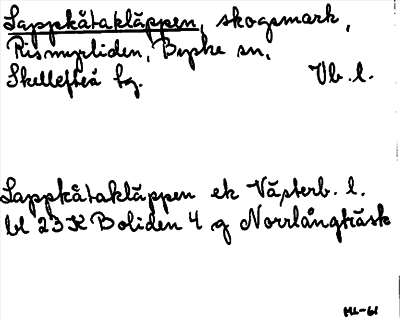 Lappkåtakläppen, skogsmark,
Rismyrliden, Byske sn,
Skellefteå tg. Vb. l.
Lappkåtakläppen ek Västerb. l.
bl 23 K Boliden 4 g Norrlångträsk
ML-61